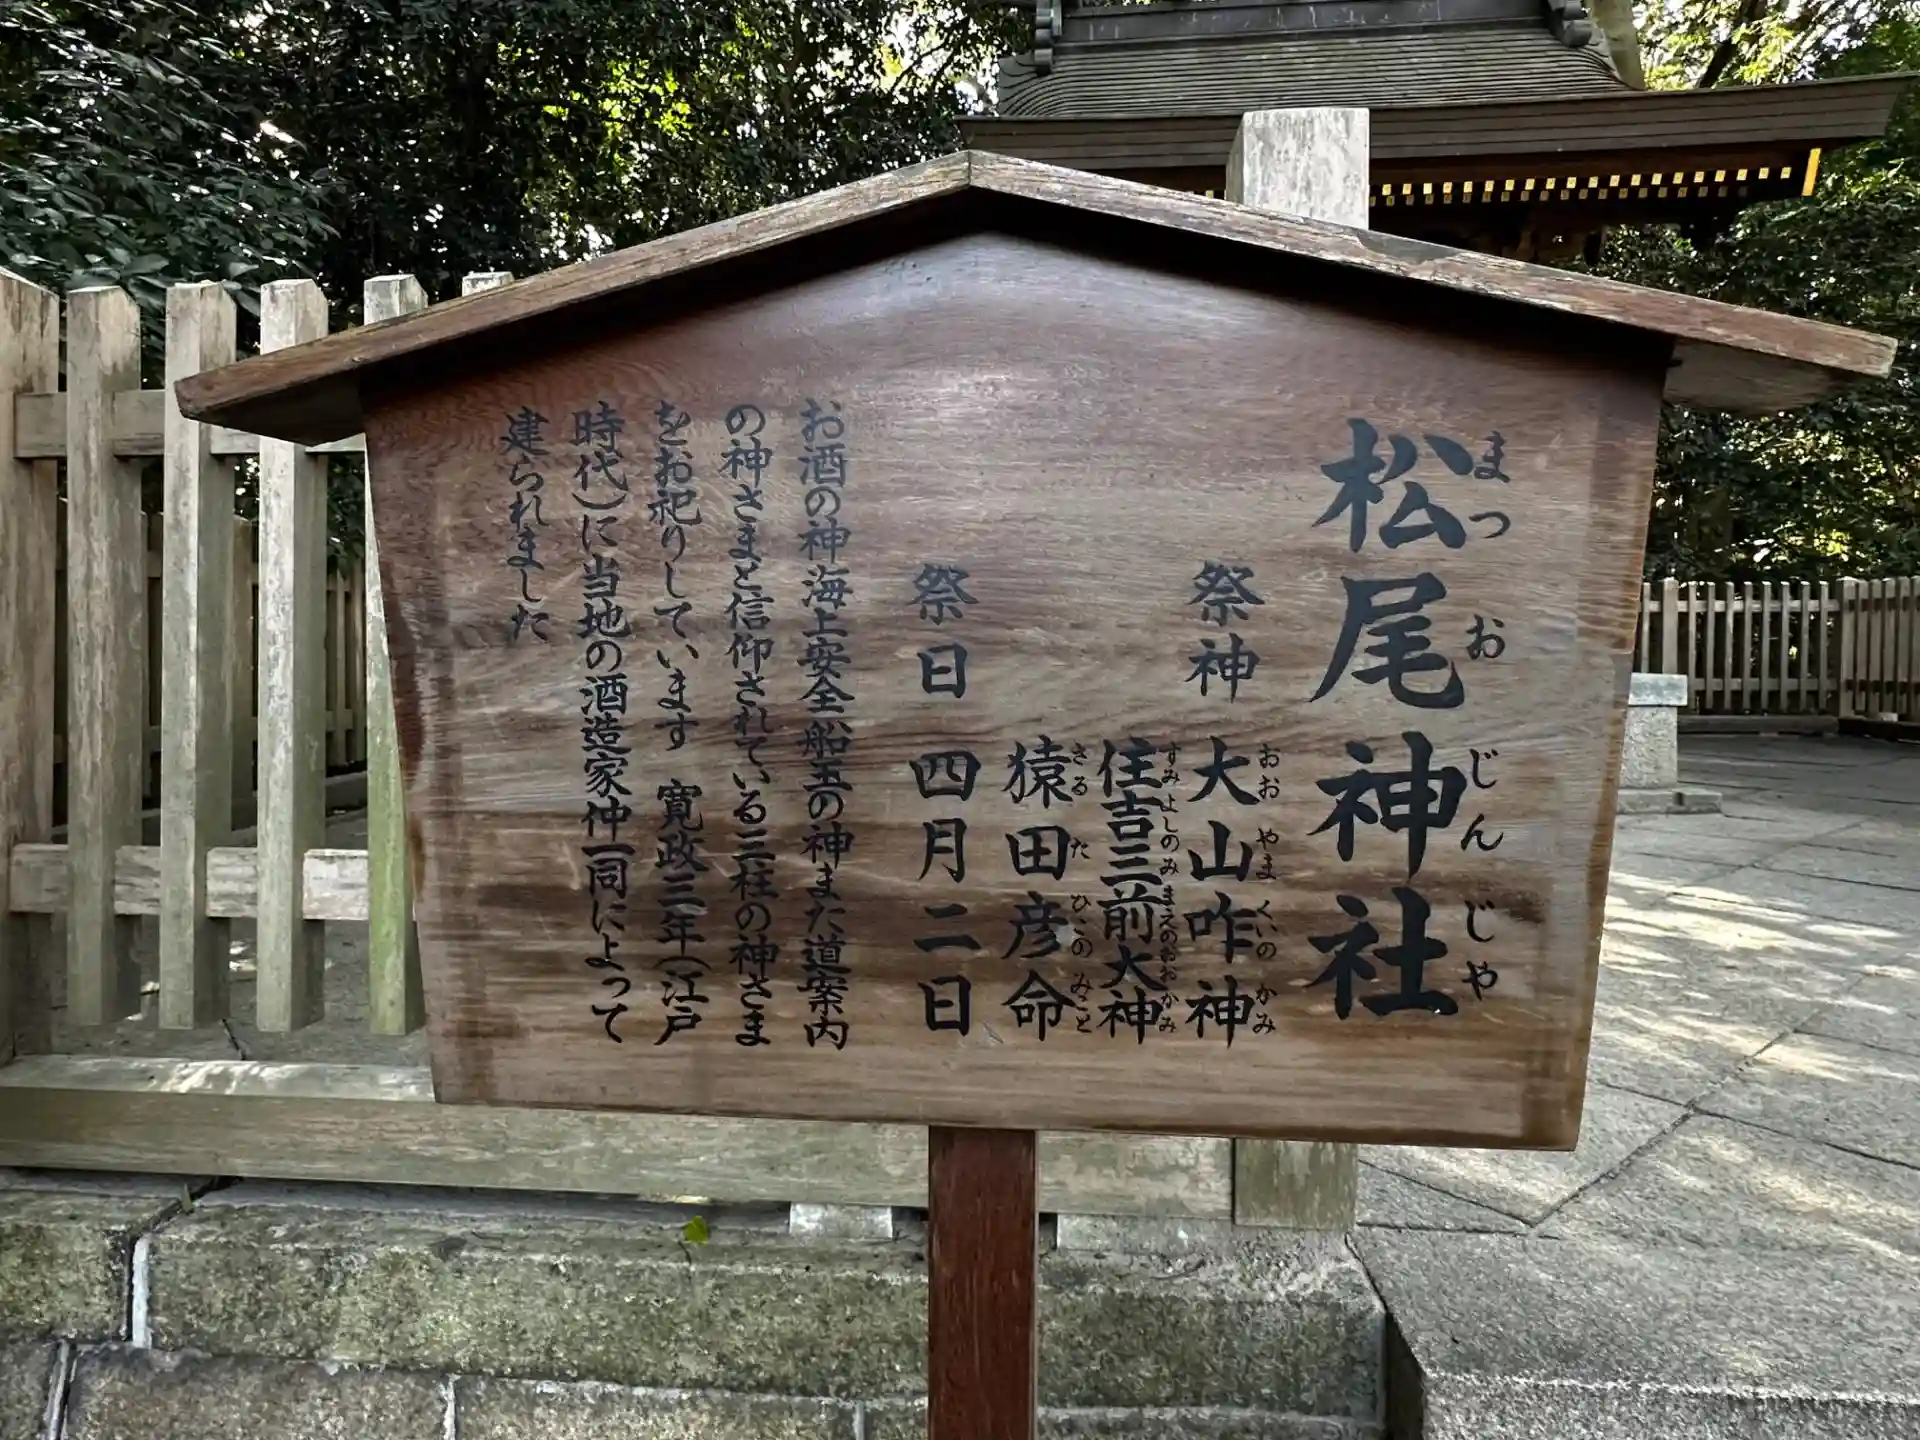 松尾神社
まつおじんじゃ
祭神
大山咋神
おおやまくいのかみ
住吉三前大神
すみよしのみまえのおおかみ
猿田彦命
さるたひこのみこと
祭日 四月二日
お酒の神海上安全船玉の神また道案内
の神さまと信仰されている三柱の神さま
をお祀りしています 寛政三年(江戸
時代)に当地の酒造家仲一同によって
建られました